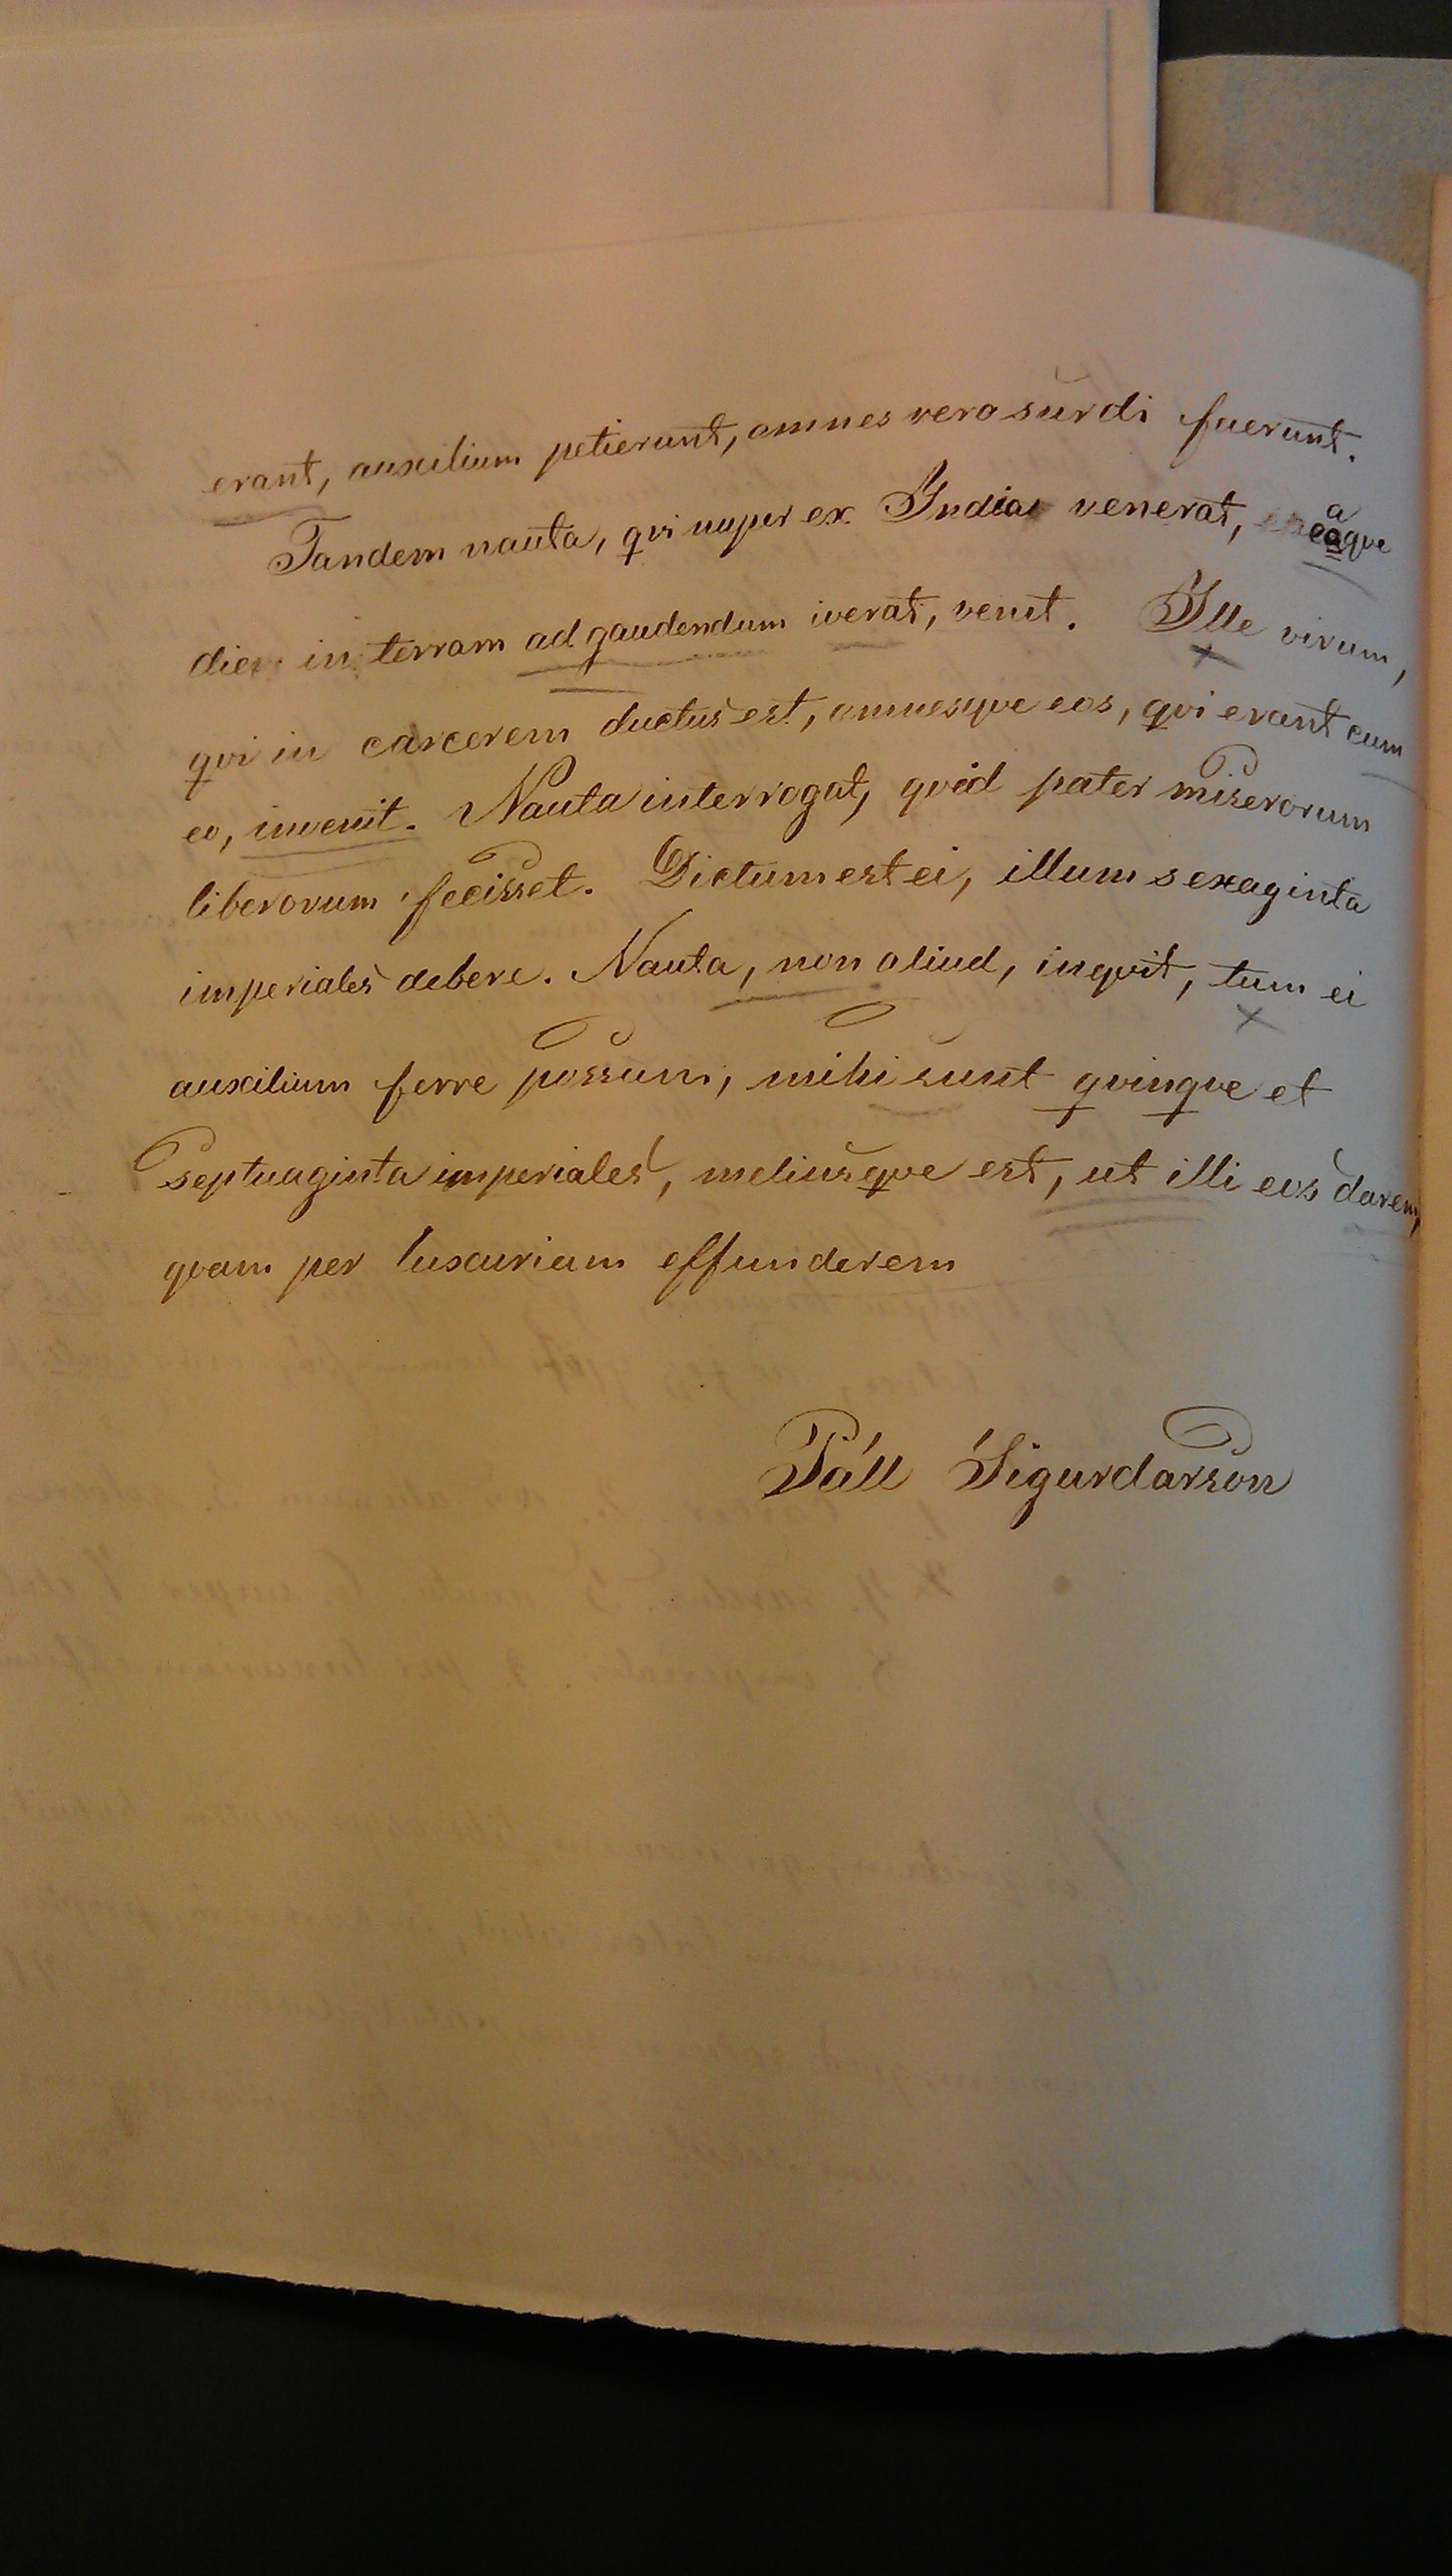 erant, auxilium petierunt, omnes vero surdi fuerunt.
Tandem nauta, qvi nuper ex India venerat, eaqve
die in terram ad gaudendum iverat, venit. Ille virum,
qvi in carcerem ductus est, omnesqve eos, qvi erant cum
eo, invenit. Nauta interrogat, qvid pater miserorum
liberorum fecisset. Dictum est ei, illum sexaginta
imperiales debere. Nauta, non aliud, inqvit, tum ei
auxilium ferre possum, mihi sunt qvinqve et
septuaginta imperiales, meliusqve est, ut illi eos darem,
qvam per luxuriam effunderem
Páll Sigurdarson